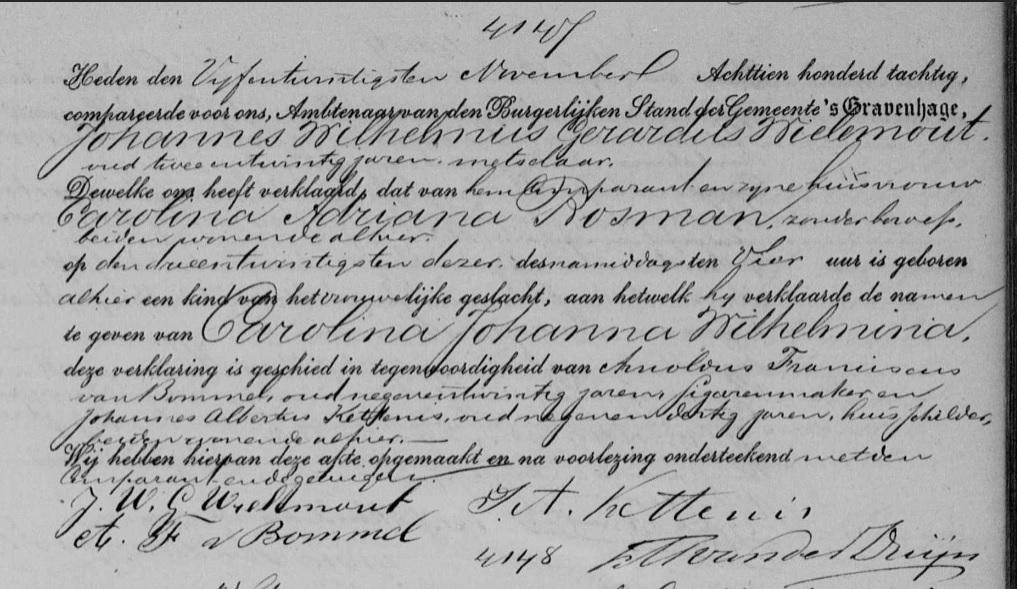 4147
Heden den Vijfentwintigsten November Achttien honderd tachtig,
compareerde voor ons, Ambtenaar van den Burgerlijken Stand der Gemeente 's Gravenhage,
Johannes Wilhelmus Gerardus Wielemout.
oud tweeentwintig jaren. metselaar.
Dewelke ons heeft verklaard, dat van hem Comparant en zyne huisvrouw
Carolina Adriana Rosman, zonder beroep,
beiden wonende alhier.
op den drieentwintigsten dezer. des namiddags ten Vier uur is geboren
alhier een kind van het vrouwelijke geslacht, aan hetwelk hy verklaarde de namen
te geven van Carolina Johanna Wilhelmina,
deze verklaring is geschied in tegenwoordigheid van Arnoldus Franciscus
van Bommel, oud negenentwintig jaren, sigarenmaker en
Johannes Albertus Kettenis, oud negenendertig jaren, huisschilder,
beiden wonende alhier.
Wij hebben hiervan deze akte opgemaakt en na voorlezing onderteekend met den
Comparant en de getuigen.
J. W. G. Wielemout J. A. Kettenis
A. F. v Bommel
4148